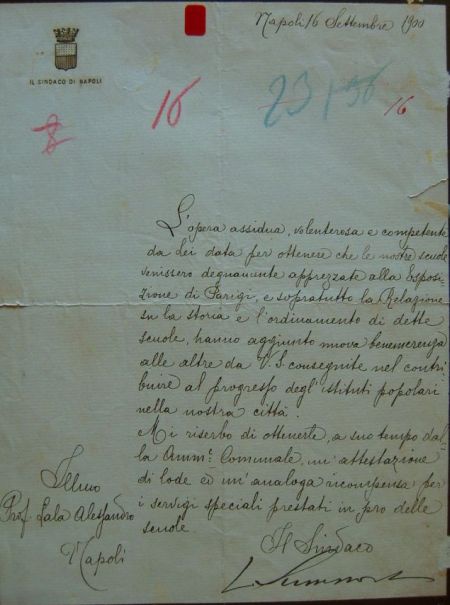 Napoli 16 Settembre 1900
IL SINDACO DI NAPOLI
8
16
23156
16
L'opera assidua, volenterosa e competente
da lei data per ottenere che le nostre scuole
venissero degnamente apprezzate alla Esposi-
zione di Parigi, e sopratutto la Relazione
su la storia e l'ordinamento di dette
scuole, hanno aggiunto nuova benemerenza
alle altre da V. S. conseguite nel contri
buire al progresso degl'istituti popolari
nella nostra città.
Mi riserbo di ottenerle, a suo tempo dal-
la Amm.e Comunale, un'attestazione
di lode ed un'analoga ricompensa per
i servigi speciali prestati in pro delle
scuole
Il Sindaco
Illmo
Prof. Lala Alessandro
Napoli